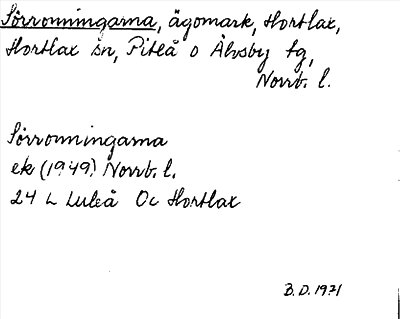 Sörronningarna, ägomark, Hortlax,
Hortlax sn, Piteå o Älvsby tg,
Norrb. l.
Sörronningarna
ek (1949) Norrb. l.
24 L Luleå Oc Hortlax
B.D. 1971